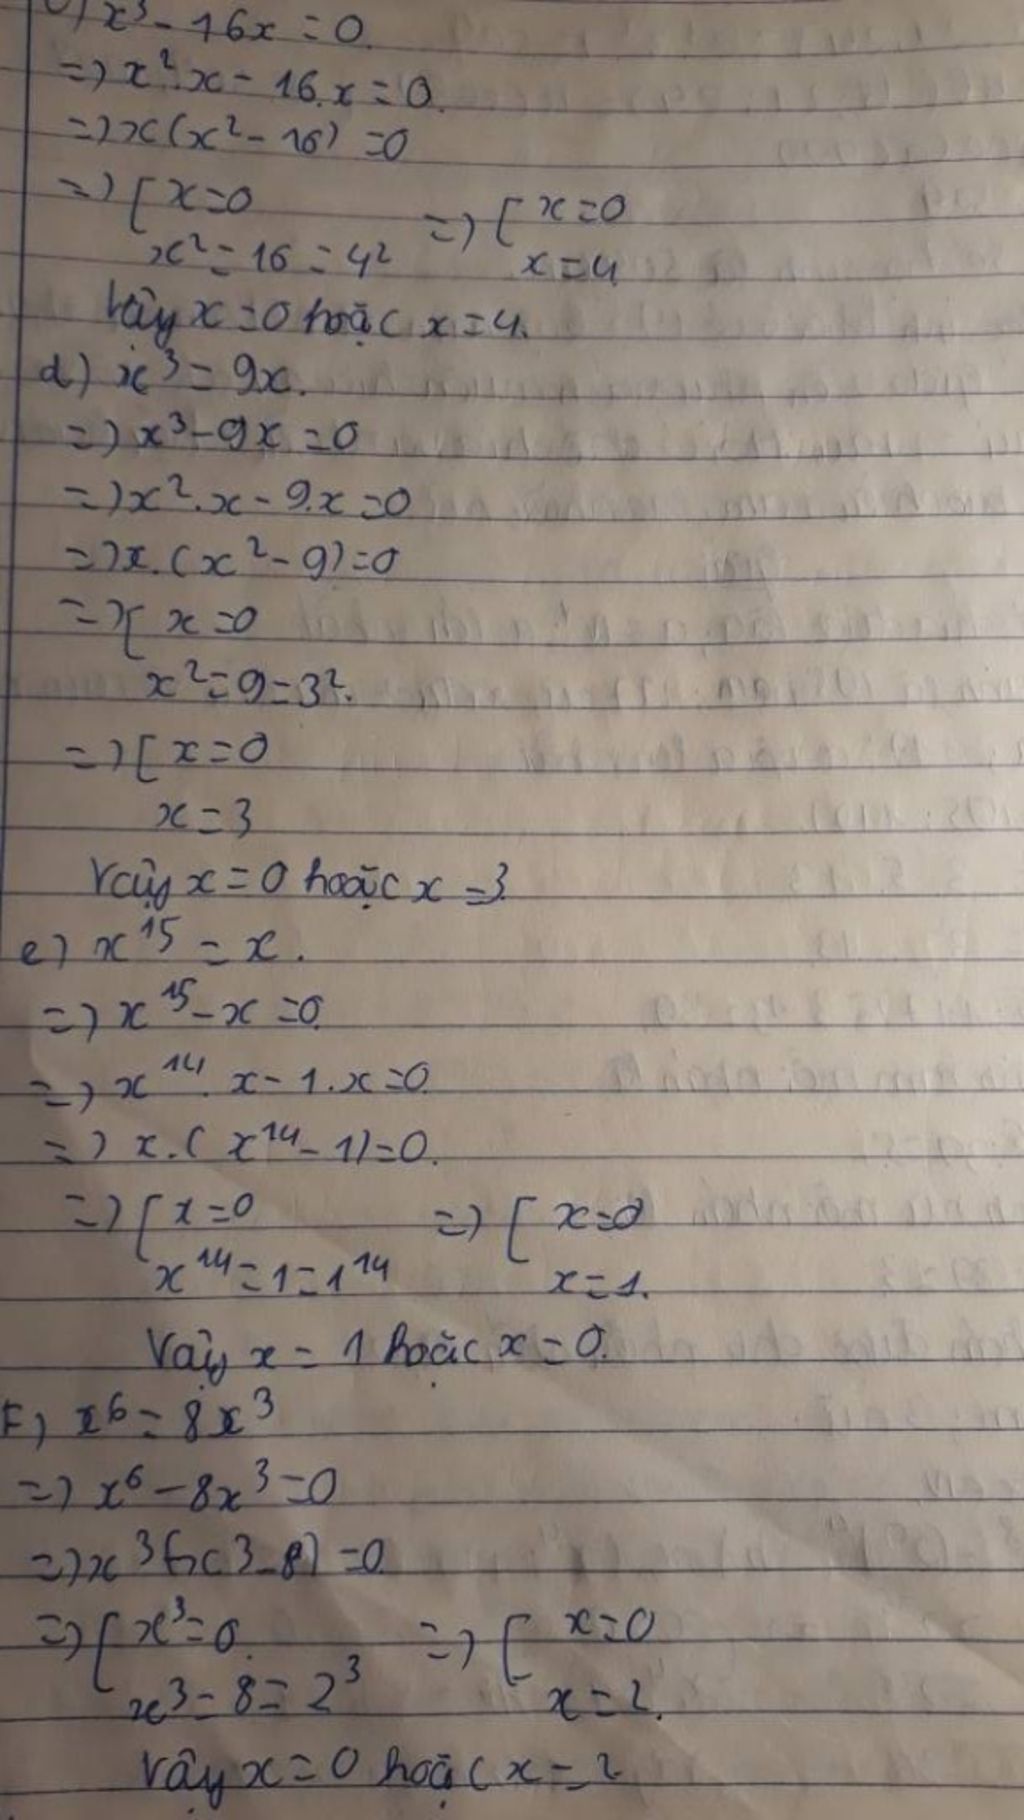 c) x³ - 16x = 0.
=> x².x - 16.x = 0.
=> x(x² - 16) = 0
=> [ x = 0 => [ x = 0
x² = 16 = 4² x = 4
Vậy x = 0 hoặc x = 4.
d) x³ = 9x.
=> x³ - 9x = 0
=> x².x - 9.x = 0
=> x.(x² - 9) = 0
=> [ x = 0
x² = 9 = 3².
=> [ x = 0
x = 3
Vậy x = 0 hoặc x = 3.
e) x¹⁵ = x.
=> x¹⁵ - x = 0.
=> x¹⁴.x - 1.x = 0
=> x.(x¹⁴ - 1) = 0.
=> [ x = 0 => [ x = 0
x¹⁴ = 1 = 1¹⁴ x = 1.
Vậy x = 1 hoặc x = 0.
F) x⁶ = 8x³
=> x⁶ - 8x³ = 0
=> x³(x³ - 8) = 0
=> [ x³ = 0. => [ x = 0
x³ = 8 = 2³ x = 2.
Vậy x = 0 hoặc x = 2